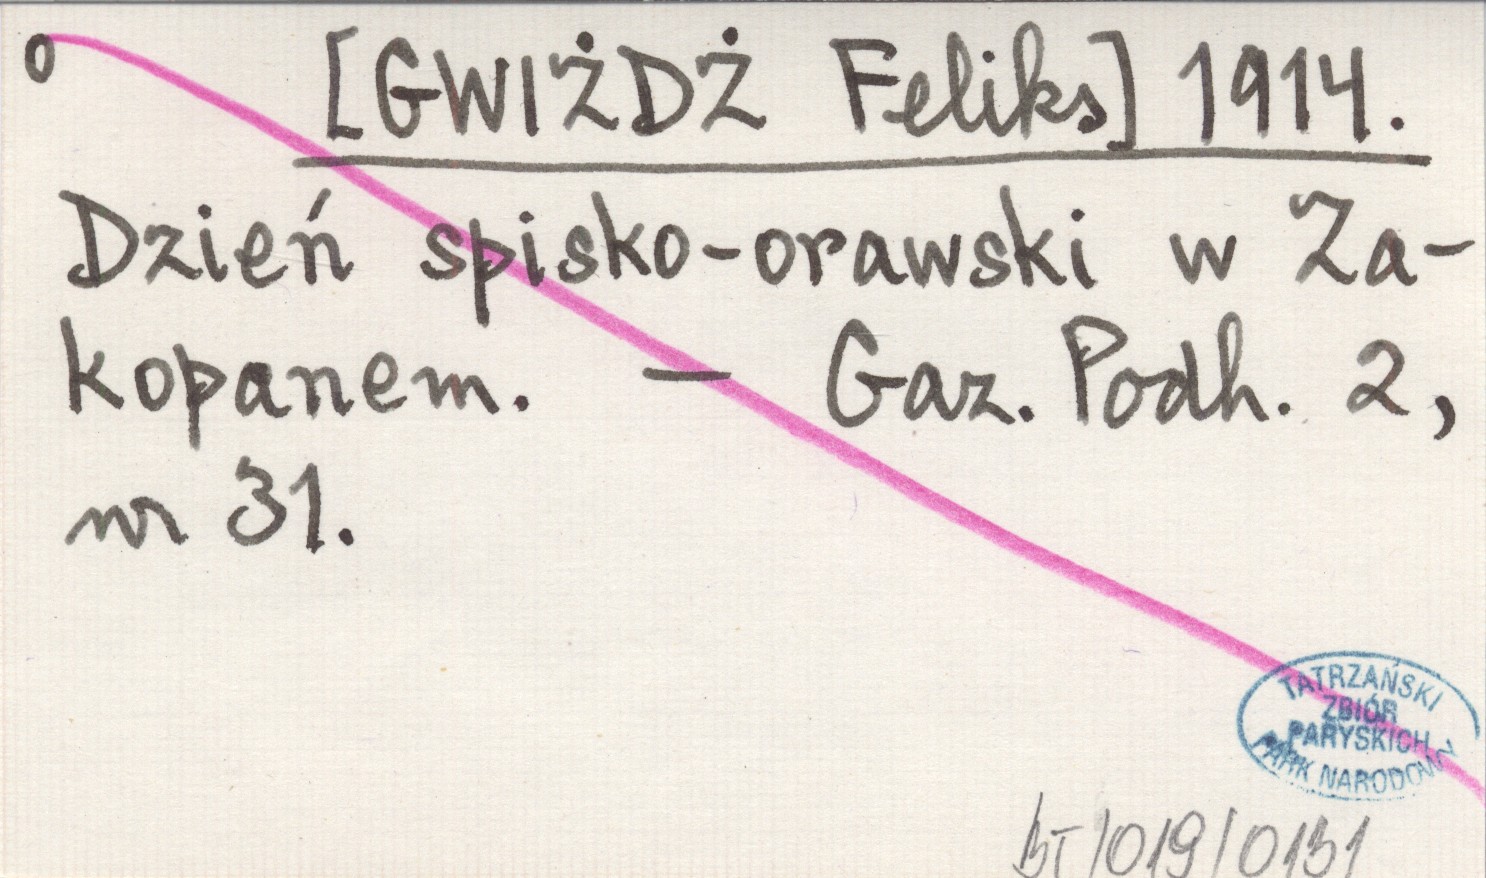 o [GWIŻDŻ Feliks] 1914.
Dzień spisko-orawski w Za-
kopanem. — Gaz. Podh. 2,
nr 31.
TATRZAŃSKI
ZBIÓR
PARYSKICH
PARK NARODOWY
BT/019/0131